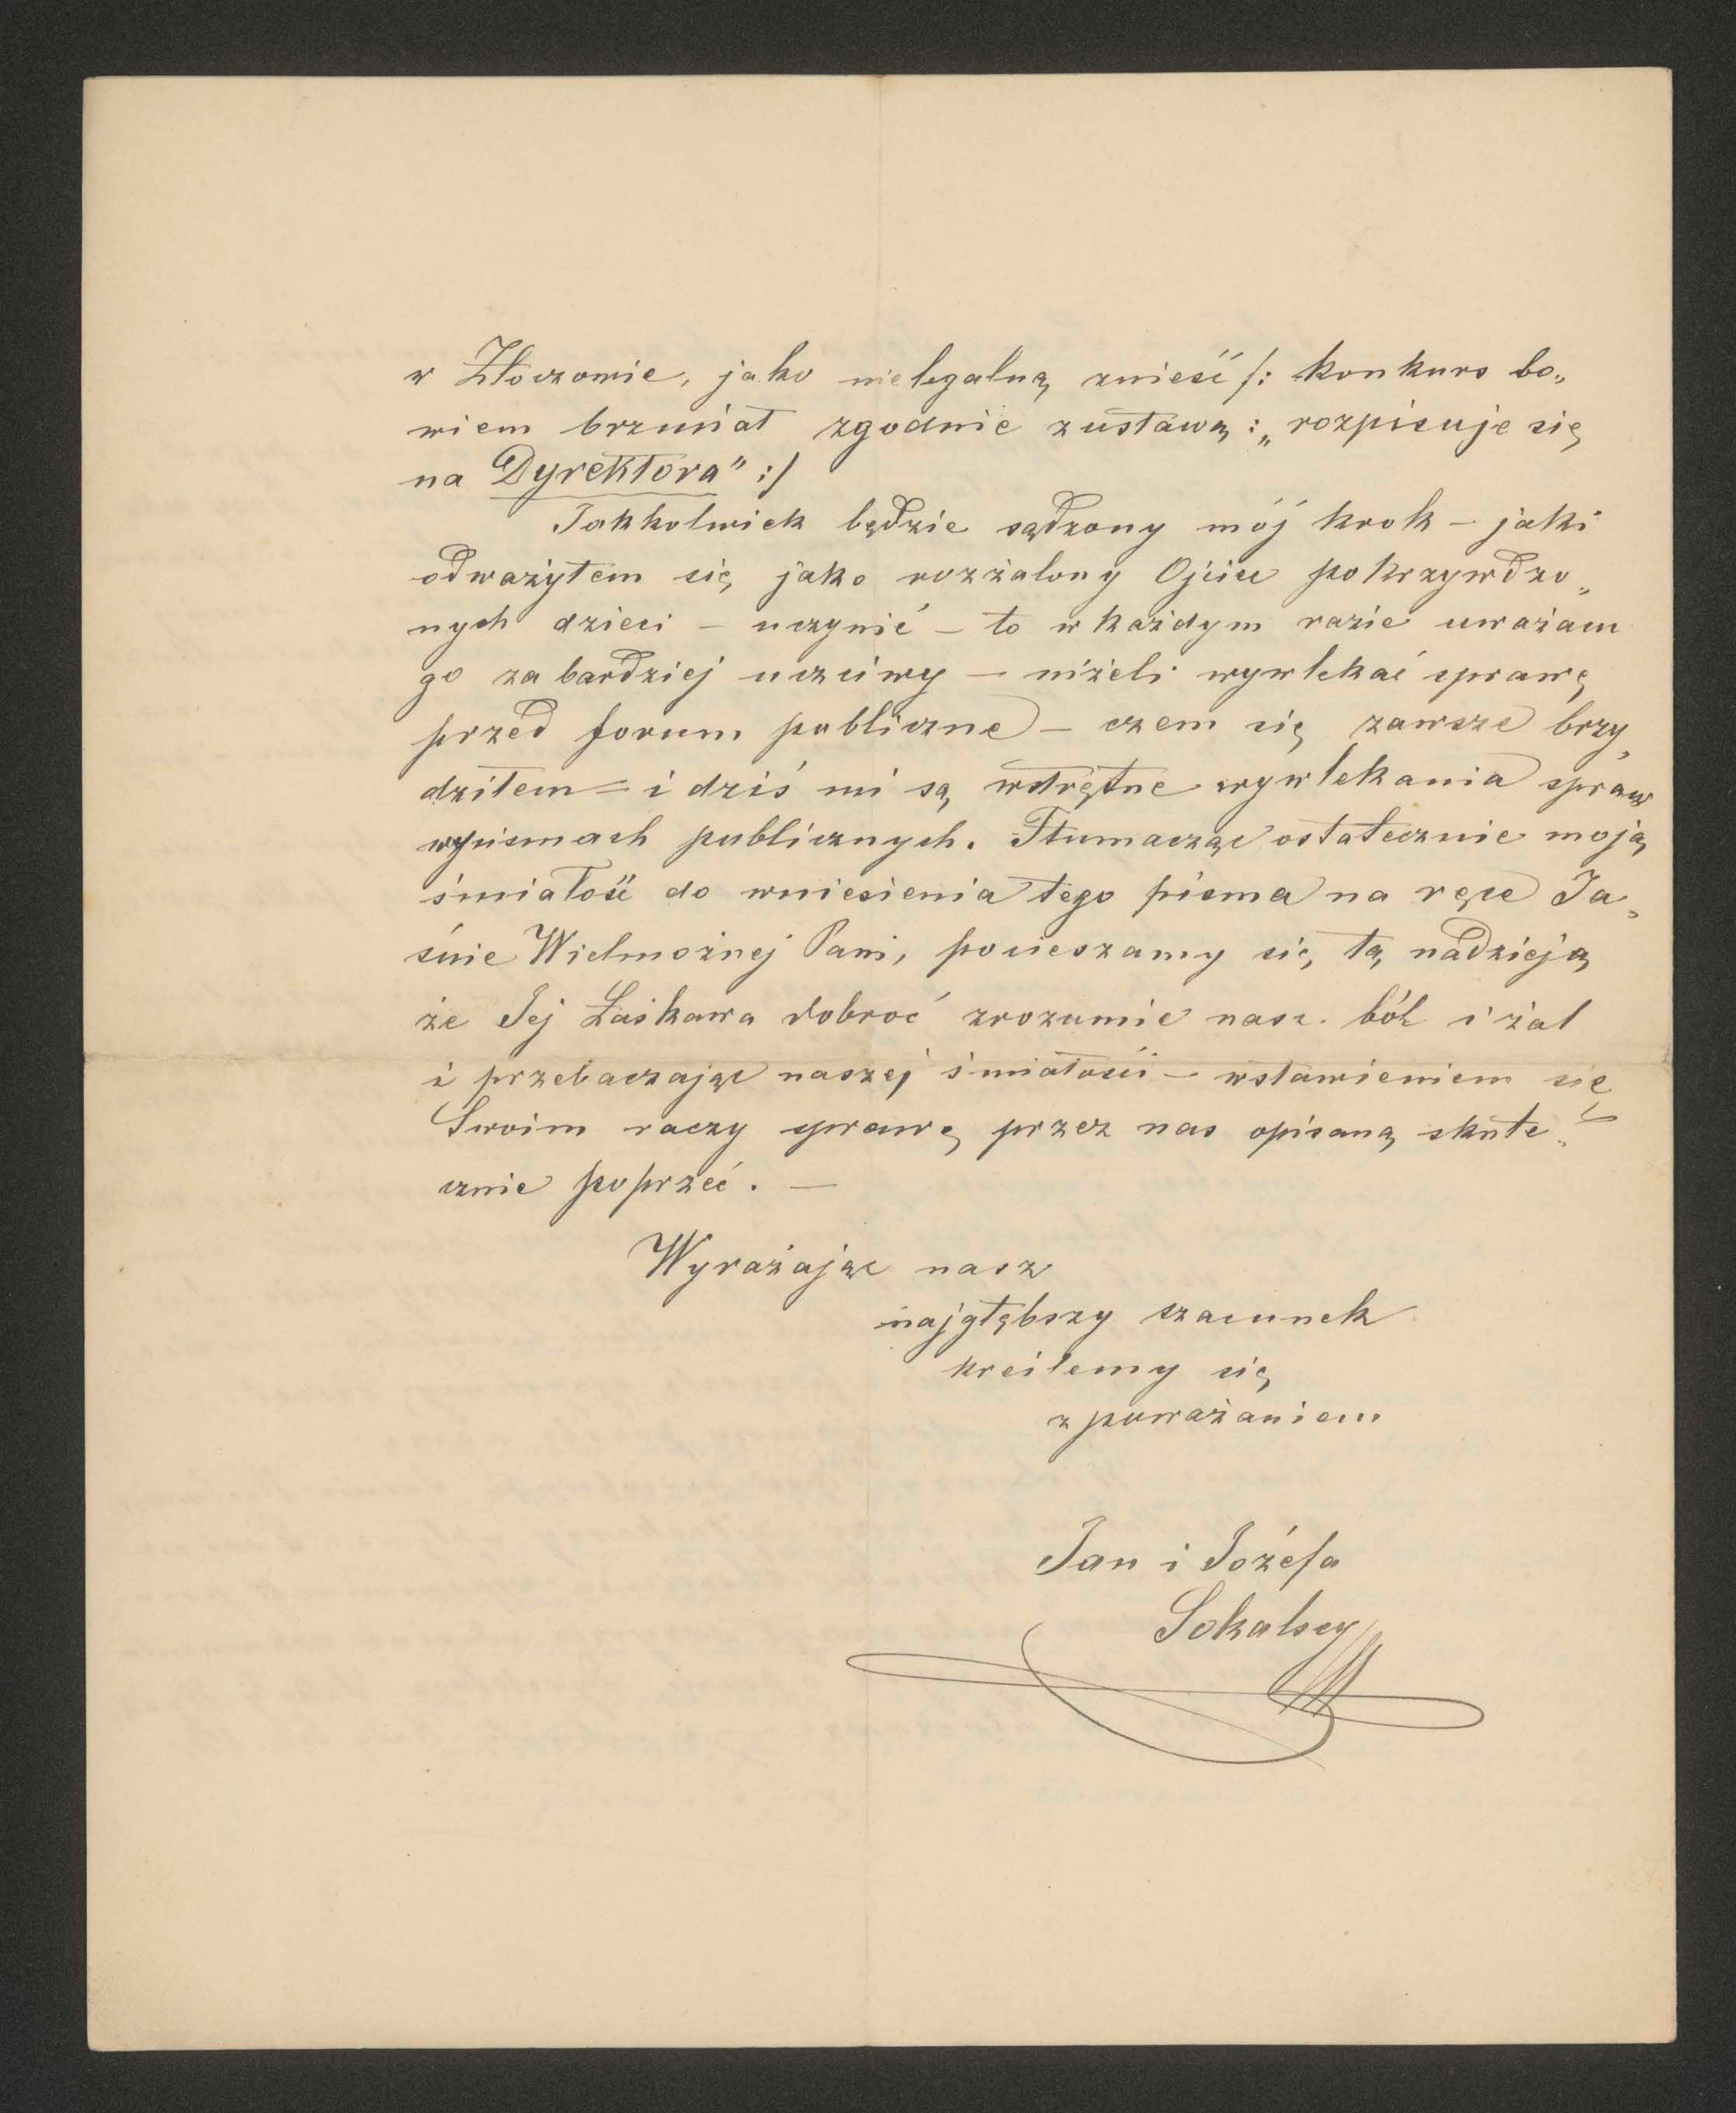 w Złoczowie, jako nielegalną znieść /: konkurs bo„
wiem brzmiał zgodnie z ustawą: „rozpisuje się
na Dyrektora" :/
Jakkolwiek będzie sądzony mój krok – jaki
odważyłem się jako rozżalony Ojciec pokrzywdzo„
nych dzieci – uczynić – to w każdym razie uważam
go za bardziej uczciwy – niżeli wywlekać sprawę
przed forum publiczne – czem się zawsze brzy„
dziłem – i dziś mi są wstrętne wywlekania spraw
w pismach publicznych. Tłumacząc ostatecznie moją
śmiałość do wniesienia tego pisma na ręce Ja„
śnie Wielmożnej Pani, pocieszamy się tą nadzieją
że Jej Łaskawa dobroć zrozumie nasz ból i żal
i przebaczając naszej śmiałości – wstawieniem się
Swoim raczy sprawę przez nas opisaną skute„
cznie poprzeć. —
Wyrażając nasz
najgłębszy szacunek
kreślemy się
z poważaniem
Jan i Józefa
Sokalscy